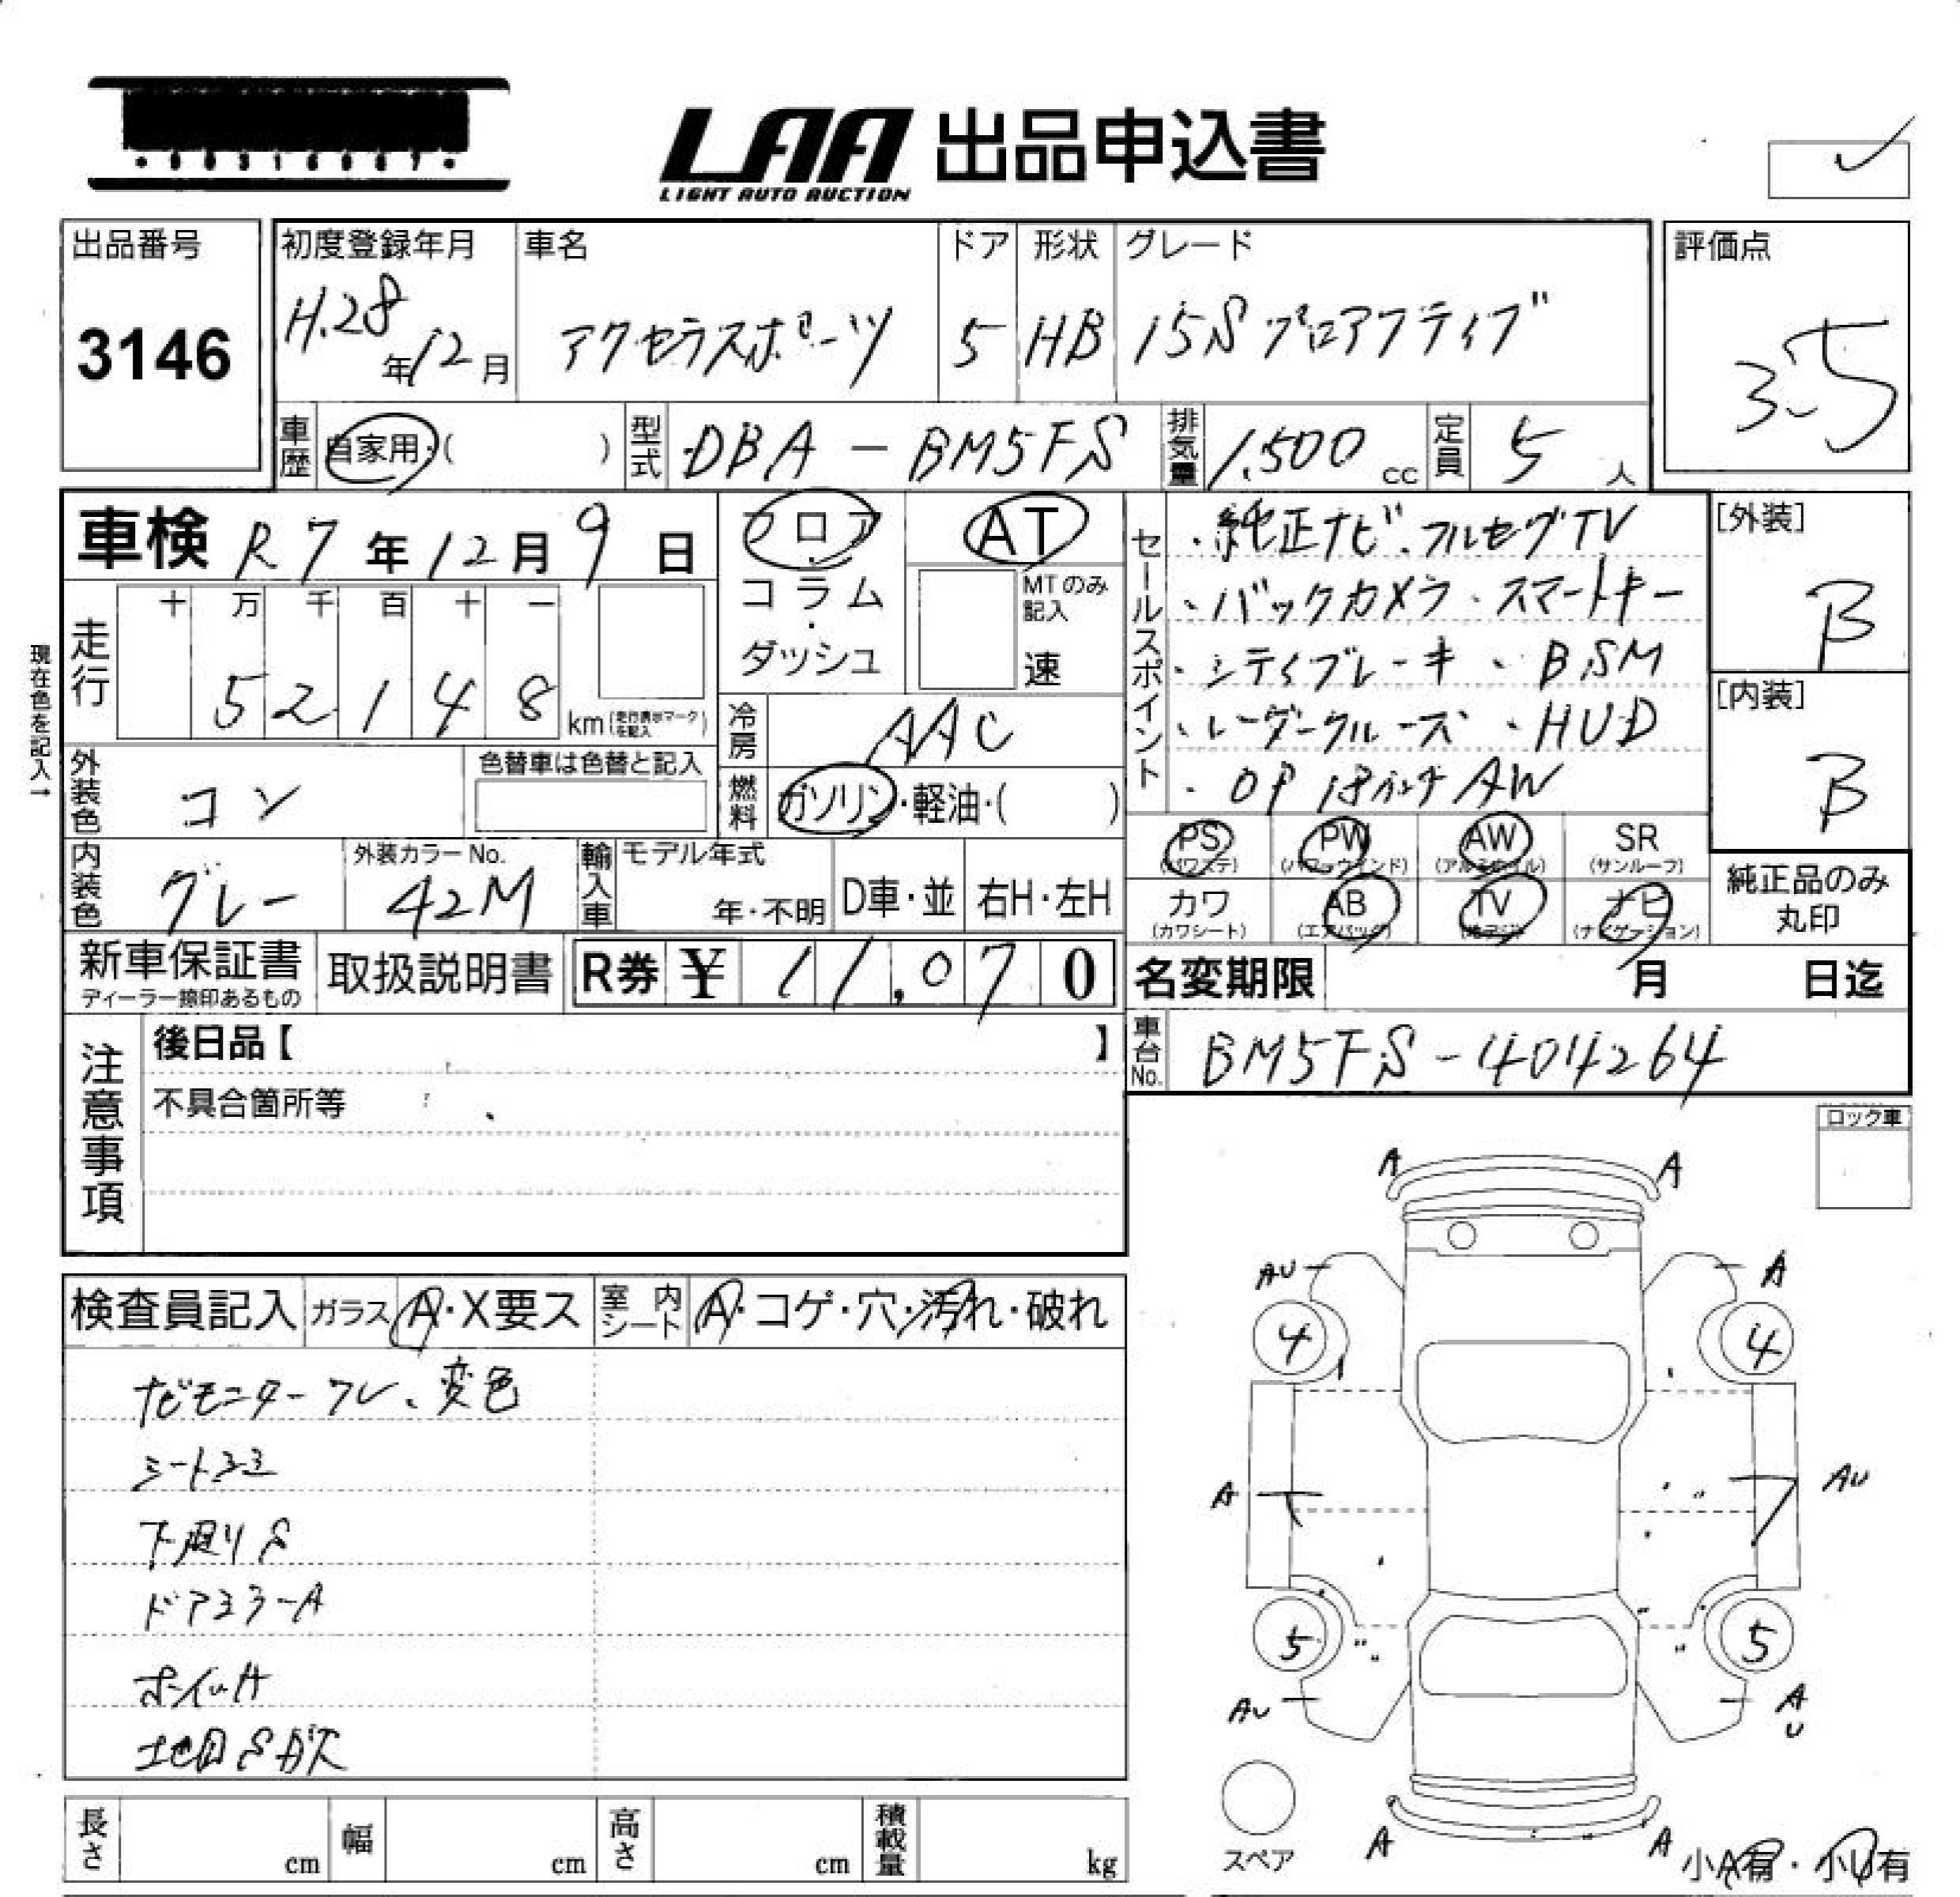 LAA 出品申込書
LIGHT AUTO AUCTION
出品番号
3146
初度登録年月
H.28年12月
車名
アクセラスポーツ
ドア
5
形状
HB
グレード
15S プロアクティブ
評価点
3.5
車歴 自家用・( )
型式 DBA-BM5FS
排気量 1,500 cc
定員 5 人
車検 R7年12月9日
フロア・コラム・ダッシュ
AT
MTのみ記入
速
セールスポイント
・純正ナビ、フルセグTV
・バックカメラ・スマートキー
・シティブレーキ・BSM
・レーダークルーズ・HUD
・OP 18インチAW
[外装]
B
[内装]
B
現在色を記入→
走行
十 万 千 百 十 一
5 2 1 4 8
km(走行表示マークを記入)
冷房 AAC
外装色 コン
色替車は色替と記入
燃料 ガソリン・軽油・( )
内装色 グレー
外装カラーNo.
42M
輸入車 モデル年式
年・不明
D車・並
右H・左H
PS (パワステ)
PW (パワーウインド)
AW (アルミホイル)
SR (サンルーフ)
カワ (カワシート)
AB (エアバッグ)
TV (地デジ)
ナビ (ナビゲーション)
純正品のみ丸印
新車保証書
ディーラー捺印あるもの
取扱説明書
R券 ¥ 11,070
名変期限 月 日迄
車台No. BM5FS-404264
注意事項
後日品【 】
不具合箇所等
ロック車
検査員記入
ガラス A・X要ス
室内シート A・コゲ・穴・汚れ・破れ
ナビモニターワレ、変色
シートシミ
下廻りS
ドアミラーA
ホイルA
A A
AU A
4 4
A AU
5 5
AU AU
A A
スペア
小A有・小U有
長さ cm
幅 cm
高さ cm
積載量 kg